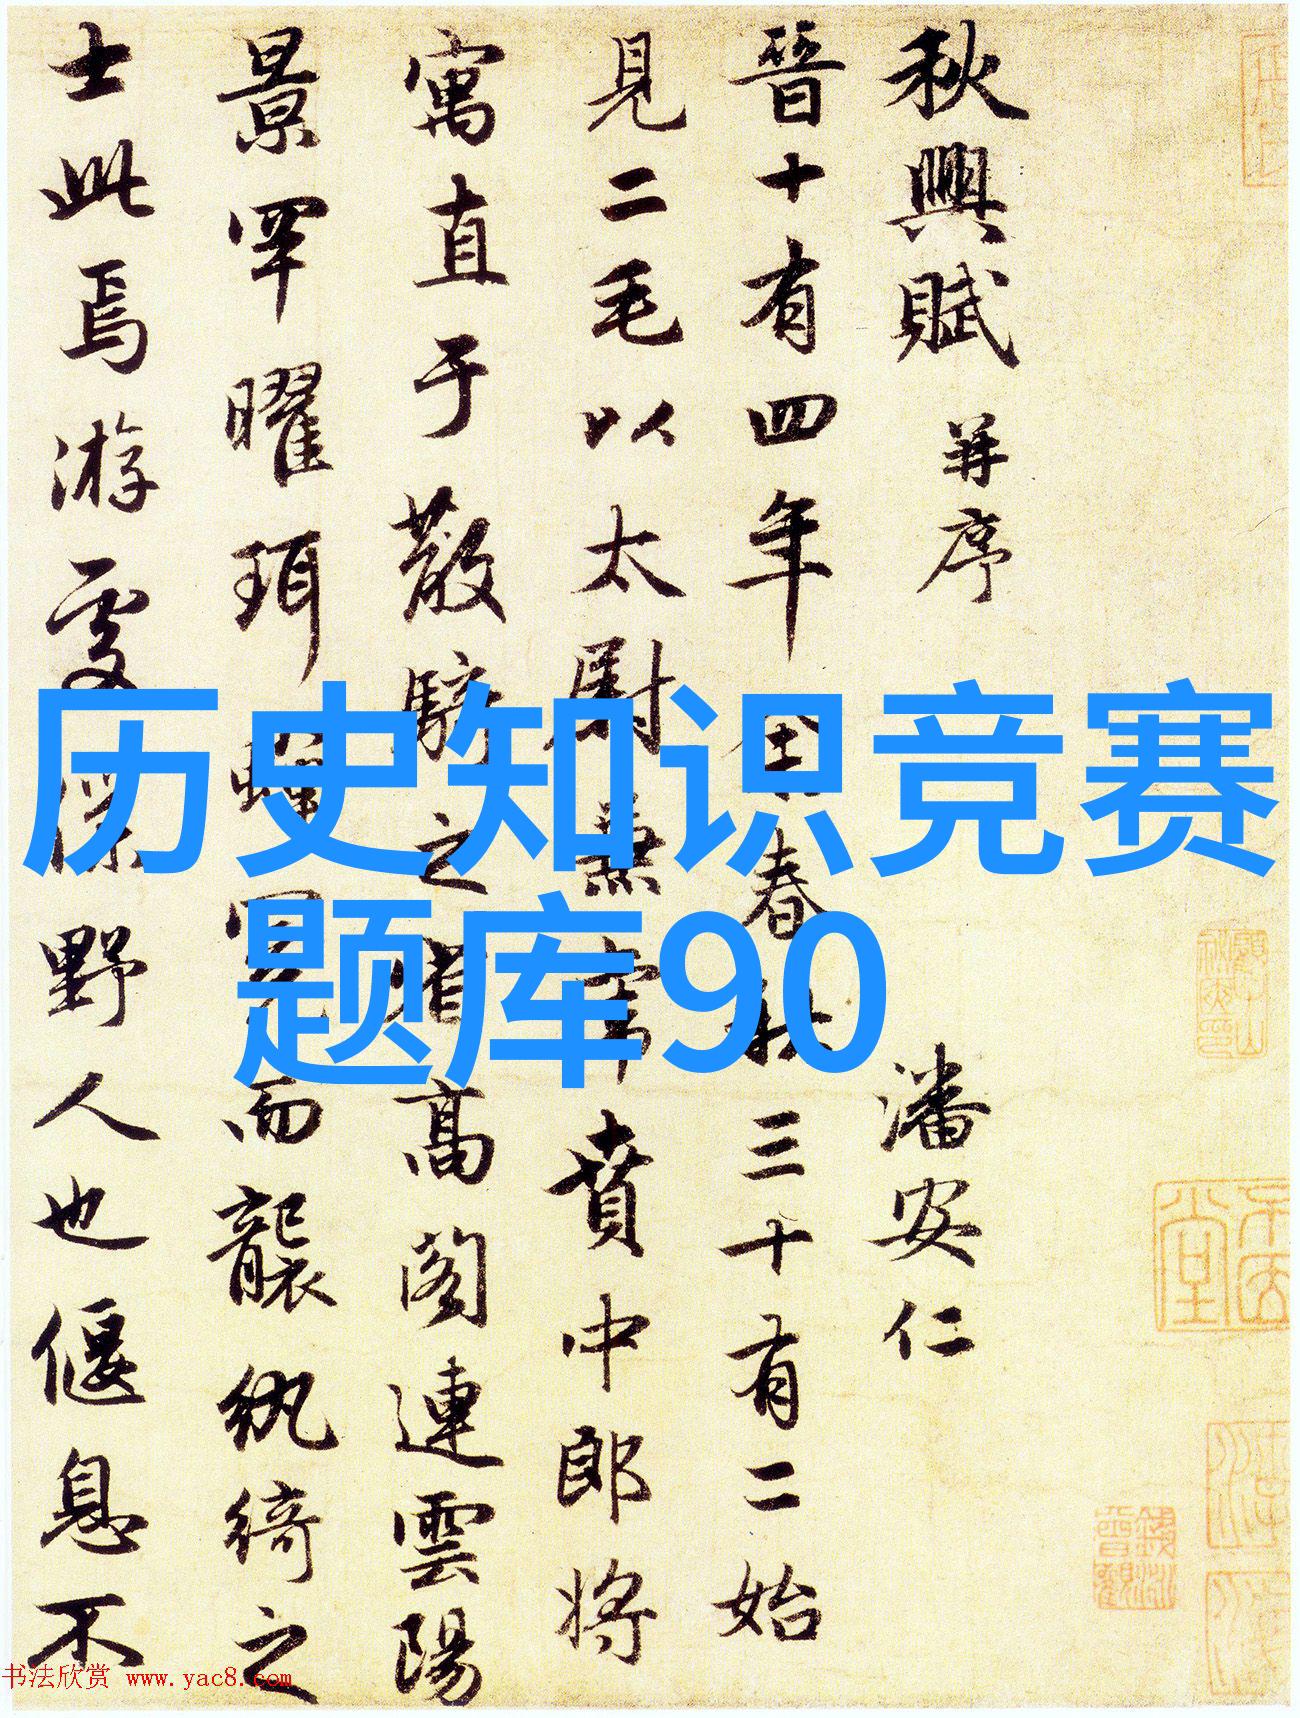 秋興賦 并序 潘安仁
晉十有四年春秋三十有二始
見二毛以太尉兼賁中郎将
寓直于散騎之省高閣連雲陽
景罕曜珥蟬冕而襲紈綺之
士此焉游處僕野人也偃息不
历史知识竞赛
题库90
书法欣赏 www.yac8.com